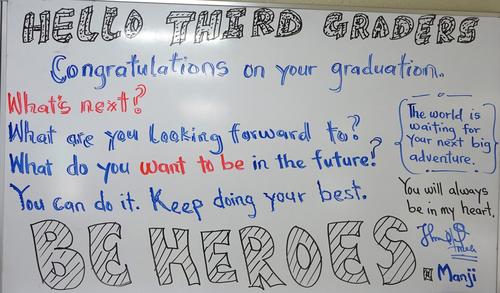 HELLO THIRD GRADERS
Congratulations on your graduation.
What's next?
What are you looking forward to?
What do you want to be in the future?
You can do it. Keep doing your best.
The world is
waiting for
your next big
adventure.
You will always
be in my heart.
BE HEROES
Manji